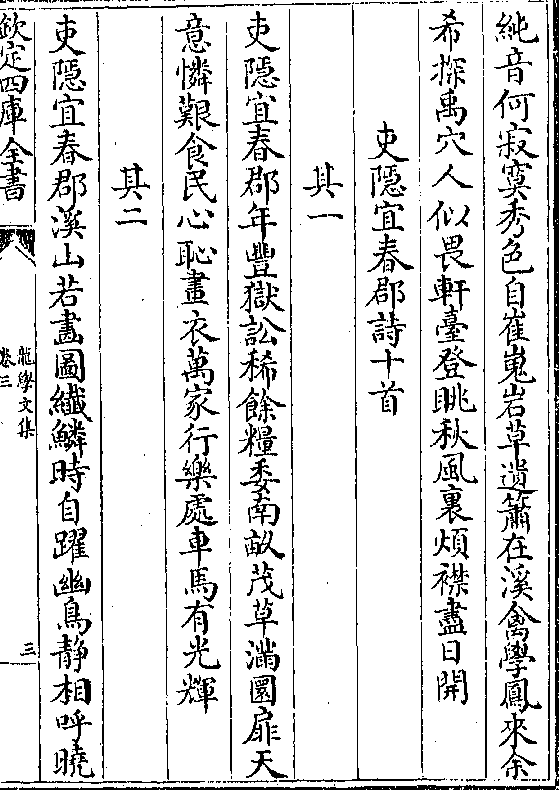 純音何寂寞秀色自崔嵬岩草遺簫在溪禽學鳳來余
希探禹穴人似畏軒臺登眺秋風裏煩襟盡日開
吏隱宜春郡詩十首
其一
吏隱宜春郡年豐獄訟稀餘糧委南畝茂草滿圜扉天
意憐艱食民心恥畫衣萬家行樂處車馬有光輝
其二
吏隱宜春郡溪山若畵圖纎鱗時自躍幽鳥靜相呼曉
欽定四庫全書
龍學文集
卷三
三